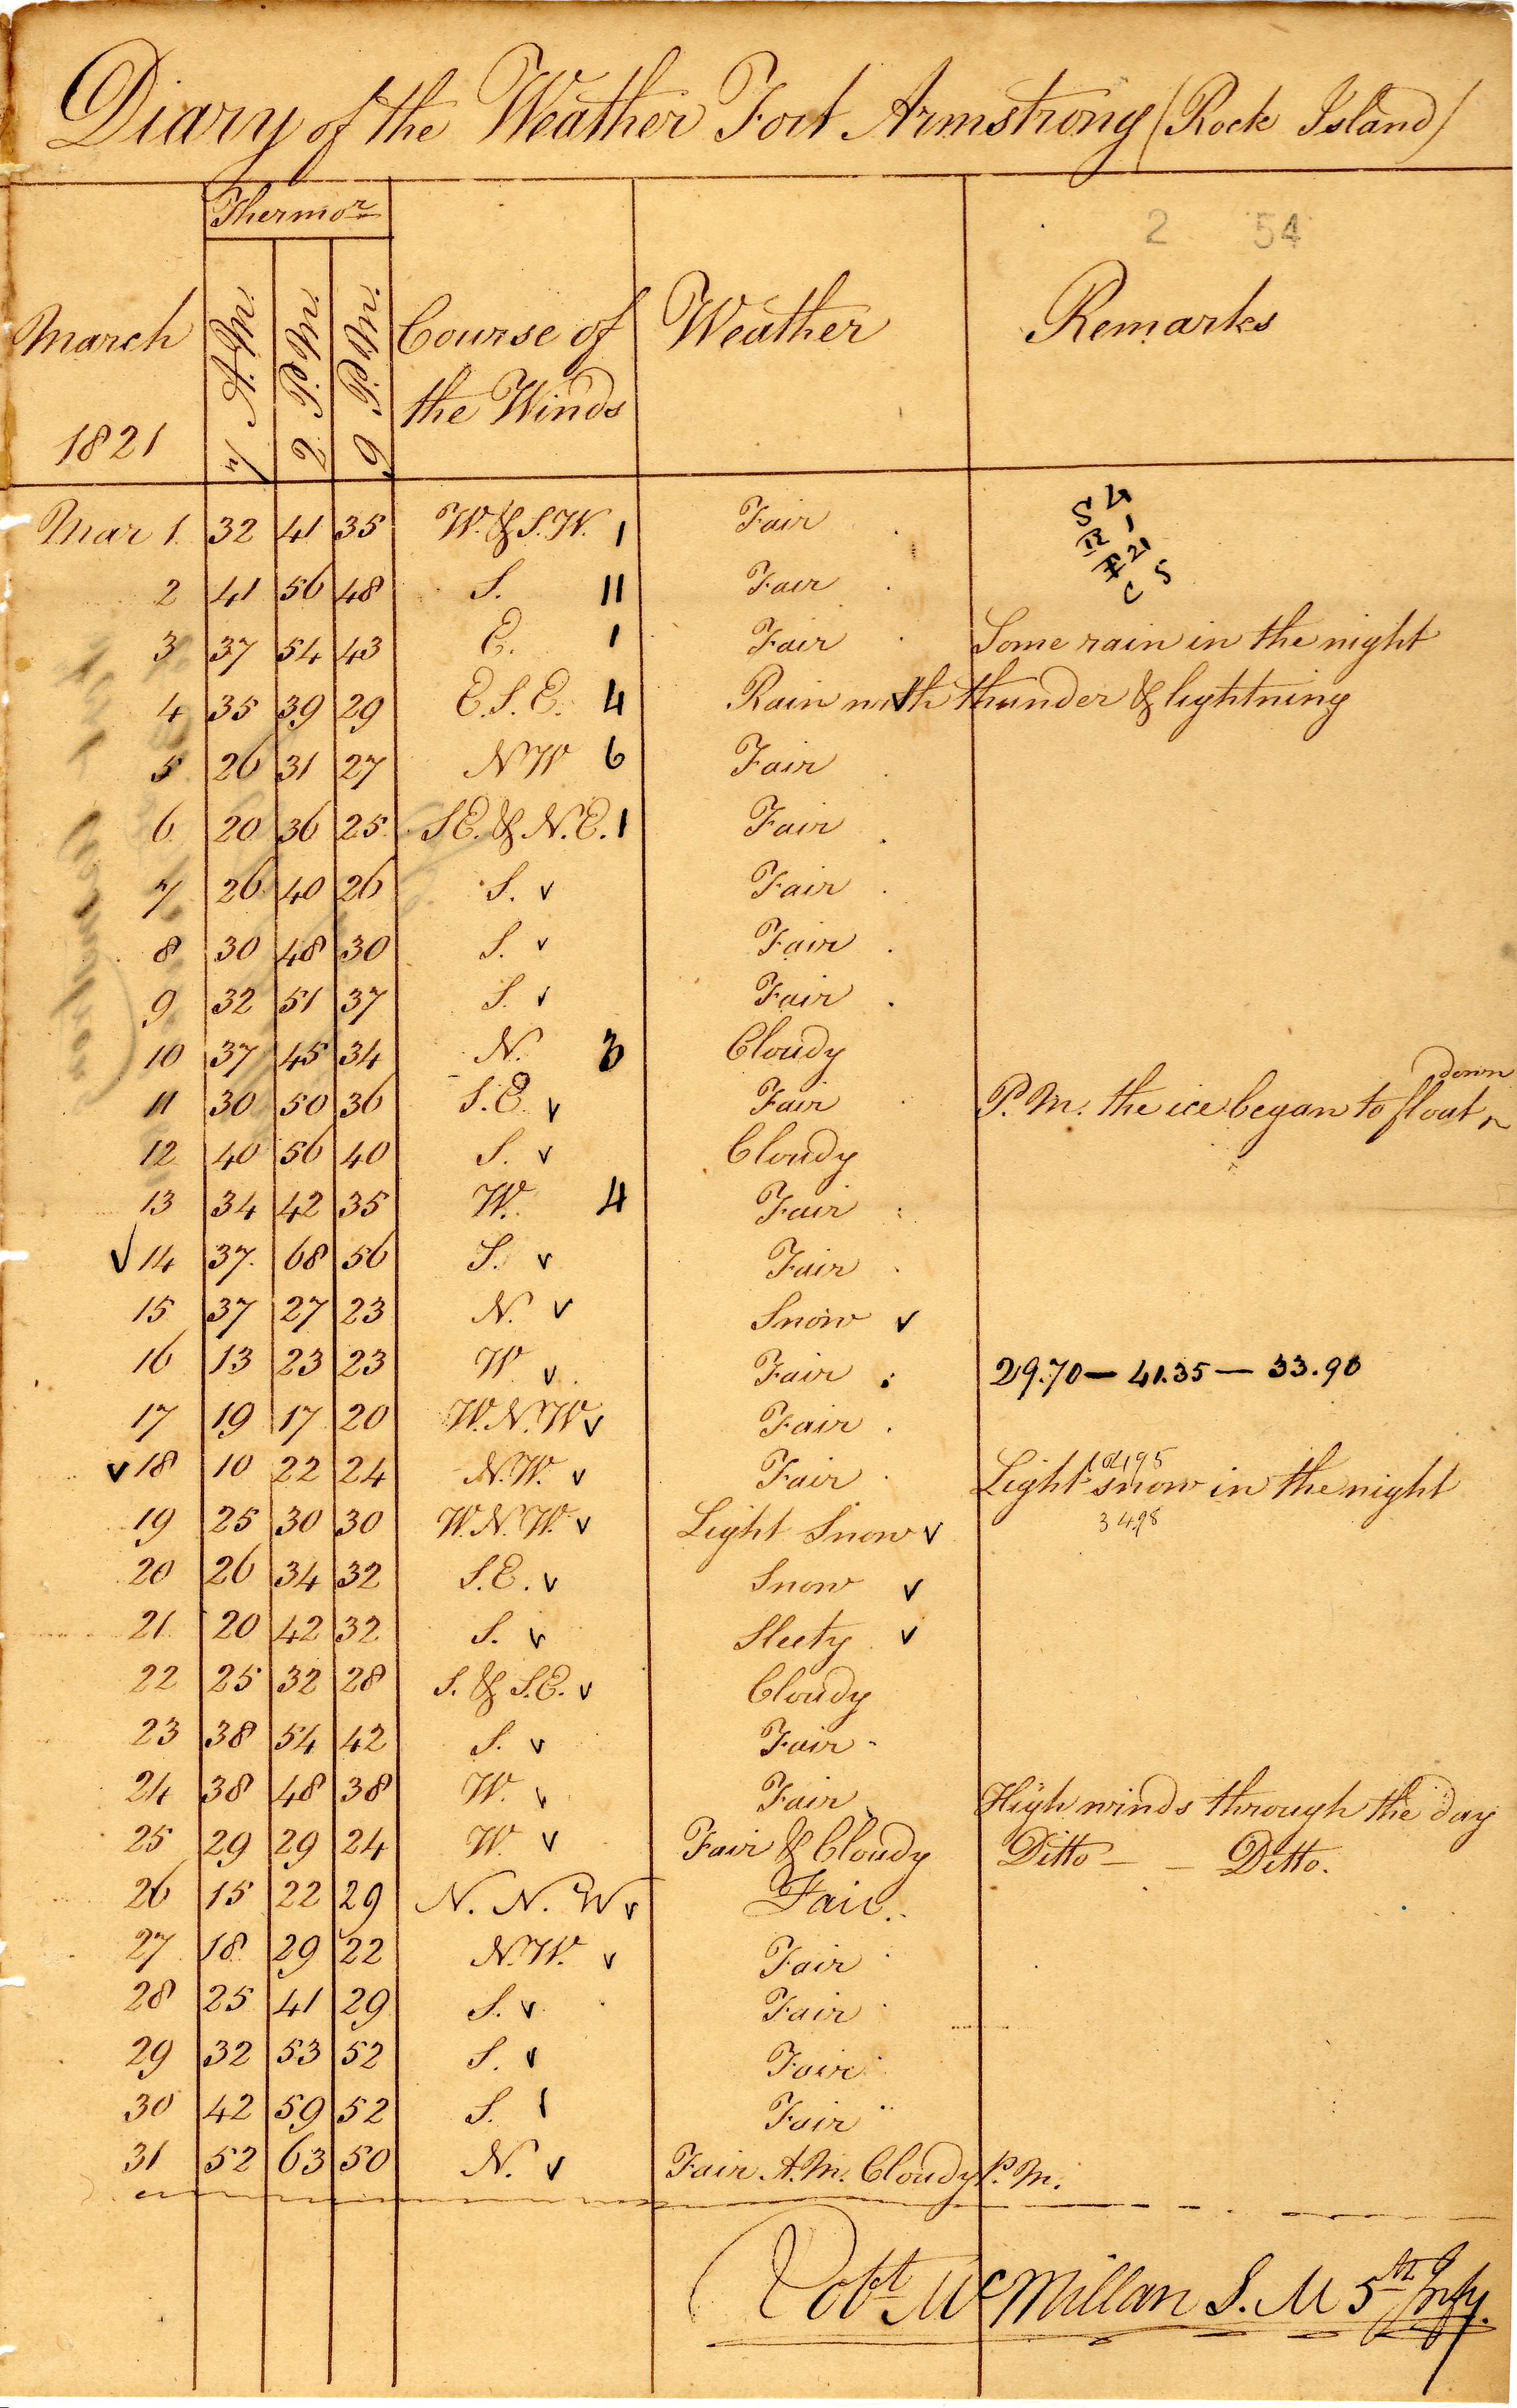 Diary of the Weather Fort Armstrong (Rock Island)
Thermor
2 54
March 1821
7 A.M.
2 P.M.
9 P.M.
Course of the Winds
Weather
Remarks
Mar 1. 32 41 35 W. & S.W. 1 Fair
S 4
R 1
F 21
C 5
2 41 56 48 S. 11 Fair
3 37 54 43 E. 1 Fair Some rain in the night
4 35 39 29 E.S.E. 4 Rain with thunder & lightning
5 26 31 27 NW 6 Fair
6 20 36 25 S E. & N.E. 1 Fair
7 26 40 26 S. v Fair
8 30 48 30 S. v Fair
9 32 51 37 S. v Fair
10 37 45 34 N. 3 Cloudy
11 30 50 36 S.E. v Fair P.M. the ice began to float down
12 40 56 40 S. v Cloudy
13 34 42 35 W. 4 Fair
v 14 37 68 56 S. v Fair
15 37 27 23 N. v Snow v
16 13 23 23 W v Fair 29.70 — 41.35 — 33.90
17 19 17 20 W.N.W v Fair
v 18 10 22 24 N.W. v Fair Light snow in the night
19 25 30 30 W.N.W. v Light Snow v 3498
20 26 34 32 S.E. v Snow v
21 20 42 32 S. v Sleety v
22 25 32 28 S. & S.E. v Cloudy
23 38 54 42 S. v Fair
24 38 48 38 W. v Fair High winds through the day
25 29 29 24 W. v Fair & Cloudy Ditto — — Ditto.
26 15 22 29 N. N. W v Fair
27 18 29 22 N.W. v Fair
28 25 41 29 S. v Fair
29 32 53 52 S. v Fair
30 42 59 52 S. 1 Fair
31 52 63 50 N. v Fair A.M. Cloudy P.M.
Robt McMillan S. M 5th Infy.